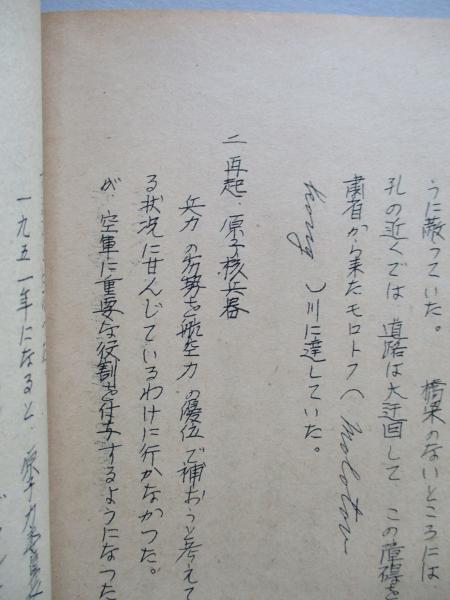 うに蔽っていた。 橋梁のないところには
孔の近くでは 道路は大迂回して この障碍を
粛省から来たモロトフ(Molotow
hong)川に達していた。
二 再起・原子核兵器
兵力の劣勢を航空力の優位で補おうと考えて
る状況に甘んじているわけに行かなかつた。
が、空軍に重要な役割を付与するようになった
一九五一年になると、原子力委員